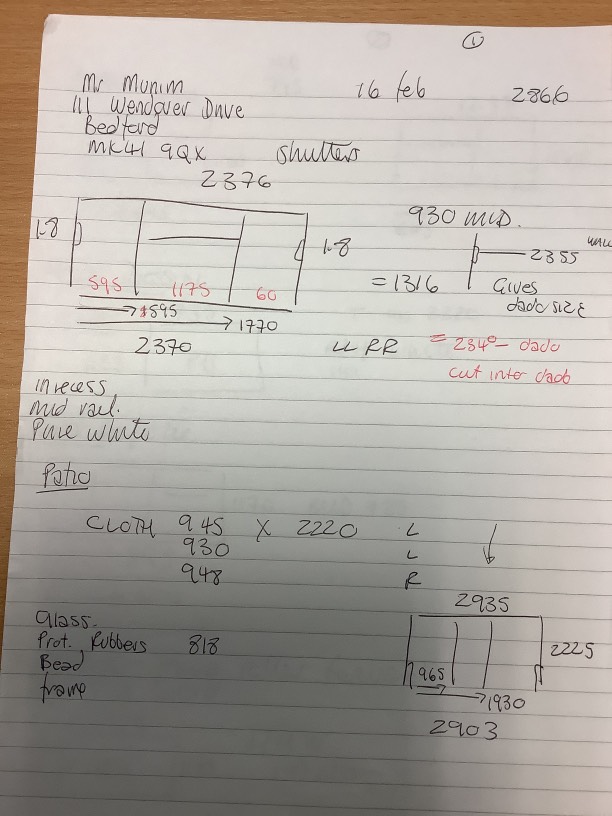 1
Mr Munim 16 feb 2866
111 Wendover Drive
Bedford
MK41 9QX Shutters
2376
930 MID.
1-8 1-8
2355 WALL
= 1316 Gives
dado size
595 1175 60
595
1770
2370
LL RR = 234° - dado
cut inter dado
in recess
mid rail.
Pure White
Patio
CLOTH 945 X 2220 L
930 L
948 R
2935
Glass.
Prot. Rubbers 818
Bead
frame
2225
965
1930
2903